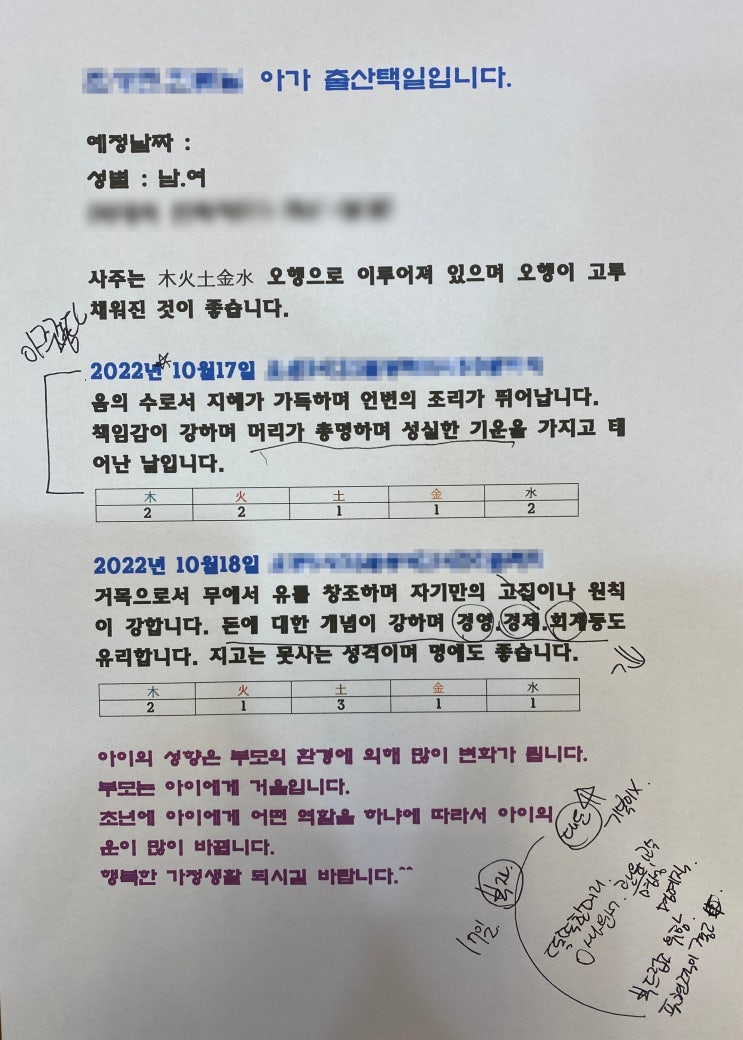 아가 출산택일입니다.
예정날짜 :
성별 : 남.여
사주는 木火土金水 오행으로 이루어져 있으며 오행이 고루
채워진 것이 좋습니다.
2022년 10월17일
음의 수로서 지혜가 가득하며 언변의 조리가 뛰어납니다.
책임감이 강하며 머리가 총명하며 성실한 기운을 가지고 태
어난 날입니다.
木 火 土 金 水
2 2 1 1 2
2022년 10월18일
거목으로서 무에서 유를 창조하며 자기만의 고집이나 원칙
이 강합니다. 돈에 대한 개념이 강하며 경영.경제.회계등도
유리합니다. 지고는 못사는 성격이며 명예도 좋습니다.
木 火 土 金 水
2 1 3 1 1
아이의 성향은 부모의 환경에 의해 많이 변화가 됩니다.
부모는 아이에게 거울입니다.
초년에 아이에게 어떤 역활을 하냐에 따라서 아이의
운이 많이 바뀝니다.
행복한 가정생활 되시길 바랍니다.^^
17일